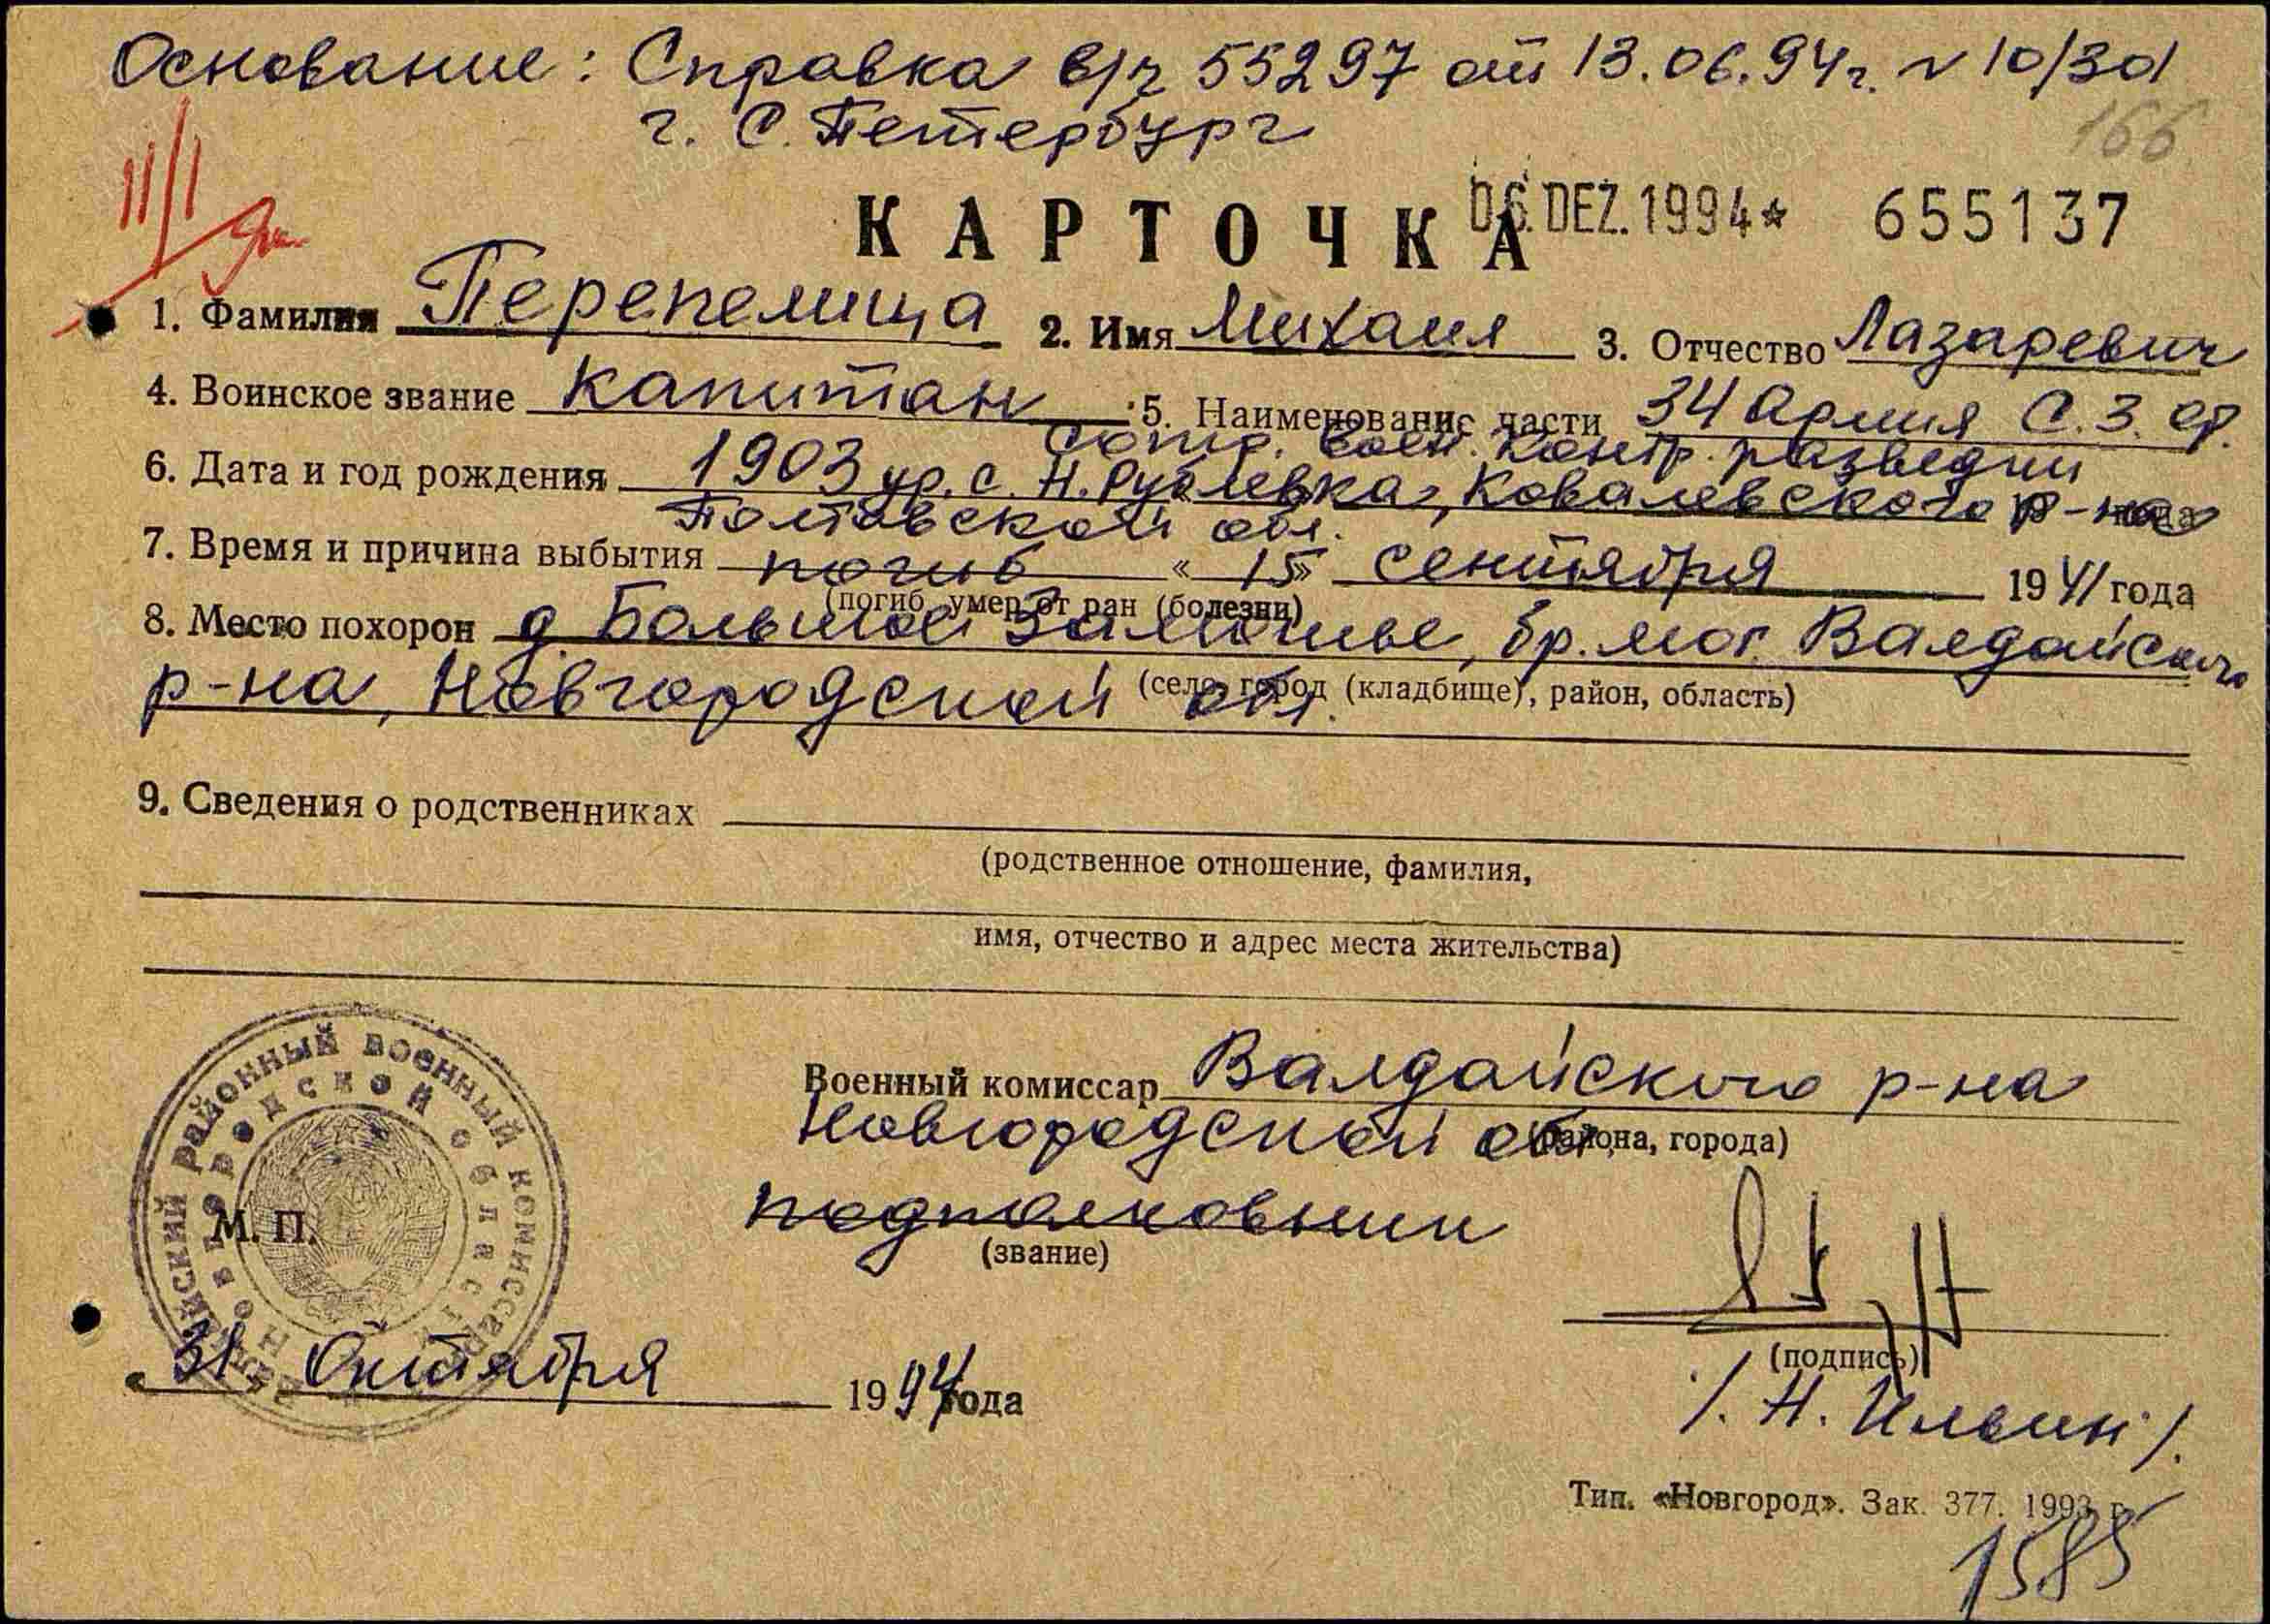 Основание: Справка в/ч 55297 от 13.06.94г. № 10/30
г. С. Петербург
166
КАРТОЧКА
06. DEZ. 1994* 655137
1. Фамилия Перепелица 2. Имя Михаил 3. Отчество Лазаревич
4. Воинское звание капитан 5. Наименование части 34 Армия С.З.ф.
сотр. воен. контр. разведки
6. Дата и год рождения 1903 ур. с. Н. Рублевка, Ковалевского р-на года
Полтавской обл.
7. Время и причина выбытия погиб « 15 » сентября 1941 года
(погиб, умер от ран (болезни)
8. Место похорон д. Большое Замошье, бр. мог. Валдайского
р-на, Новгородской обл.
(село, город (кладбище), район, область)
9. Сведения о родственниках
(родственное отношение, фамилия,
имя, отчество и адрес места жительства)
Военный комиссар Валдайского р-на
Новгородской обл.
(района, города)
подполковник
(звание)
М. П.
Валдайский районный военный комиссариат
Новгородской области
(подпись)
« 31 » Октября 1994 года
/. Н. Ильин /.
Тип. «Новгород». Зак. 377. 1993 г.
1585